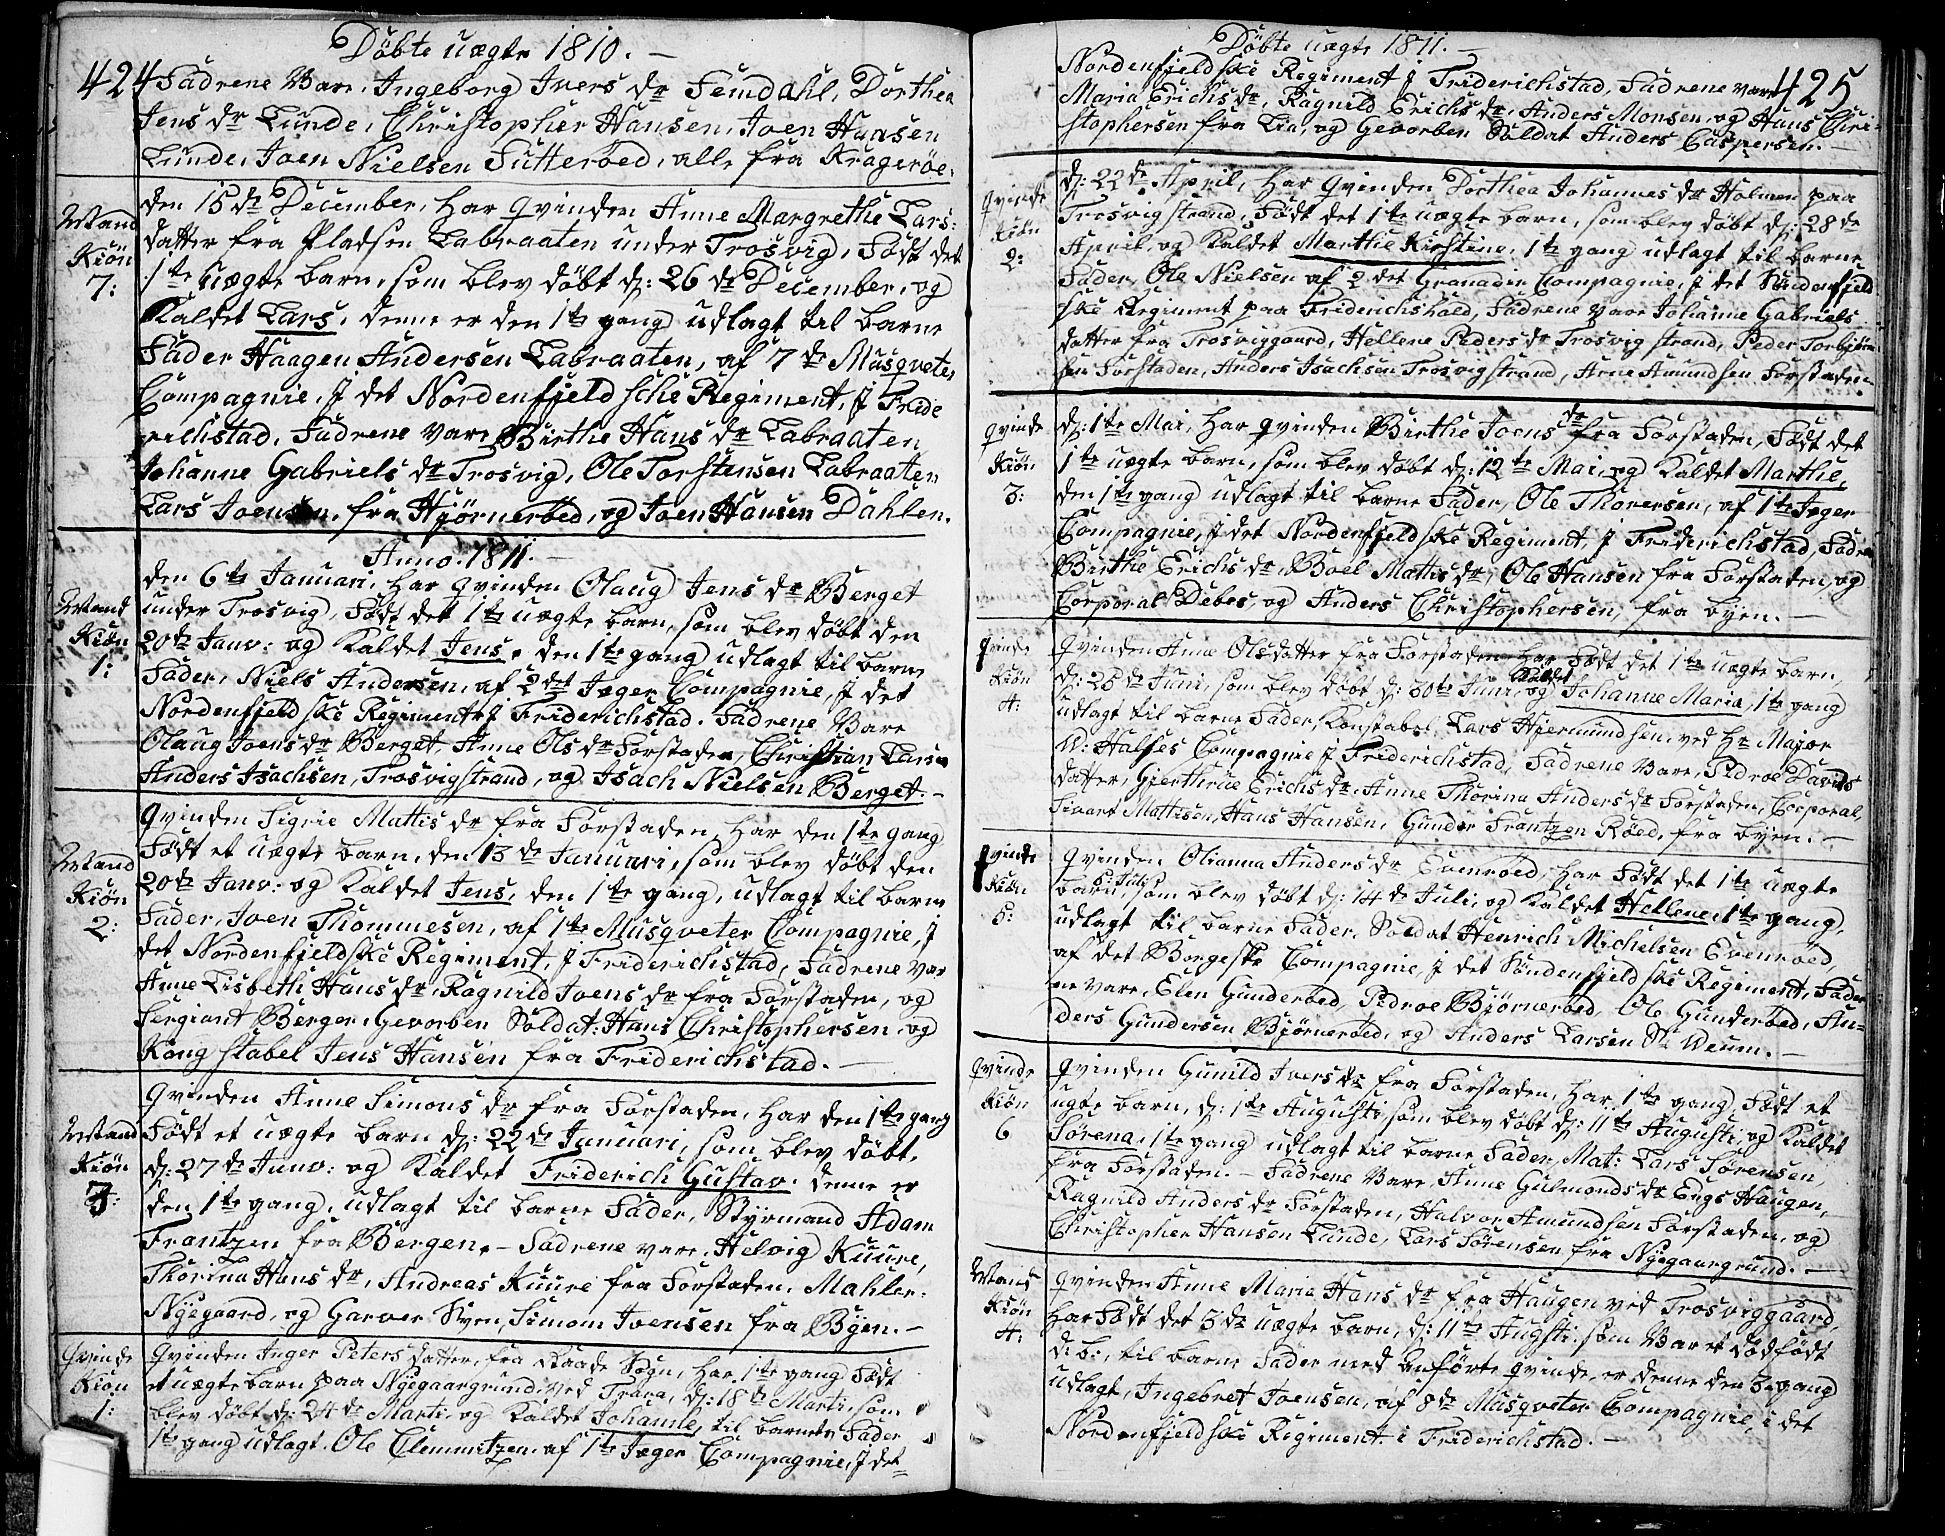 Döbte uægte 1810. —
424
Fadrene Vare, Ingeborg Ivers dr Semdahl, Dorthea
Jens dr Lunde, Christopher Hansen, Joen Hansen
Lunde, Joen Nielsen Sutteröed, alle fra Kragerøe.
Mand
Kiön
7:
den 15de December, har qvinden Anne Margrethe Lars:
datter fra Pladsen Labraaten under Trosvig, Födt det
1te uægte barn, som blev döbt d: 26de December, og
Kaldet Lars, denne er den 1te gang udlagt til barne
Fader Haagen Andersen Labraaten, af 7de Musqveter
Compagnie, J det Nordenfjeldsche Regiment, J Fride
richstad, Fadrene vare Birthe Hans dr Labraaten
Johanne Gabriels dr Trosvig, Ole Torstensen Labraaten
Lars Joensen, fra Hjørneröed, og Joen Hansen Dahlen.
Anno. 1811. —
Mand
Kiön
1:
den 6te Januari, har qvinden Olaug Jens dr Berget
under Trosvig, Födt det 1te uægte barn, som blev döbt den
20de Janv: og Kaldet Jens, den 1te gang udlagt til barne
Fader, Niels Andersen, af 2det Jæger Compagnie, J det
Nordenfjeldske Regiment J Friderichstad. Fadrene Vare
Olaug Joens dr Berget, Anne Ols dr Forstaden, Christian Larsen
Anders Isachsen, Trosvigstrand, og Isach Nielsen Berget. —
Mand
Kiön
2:
Qvinden Sigrie Mattis dr fra Forstaden, har den 1te gang
Födt et uægte barn, den 13de Januari, som blev döbt den
20de Janv: og Kaldet Jens, den 1te gang, udlagt til barne
Fader, Joen Thommesen, af 1te Musqveter Compagnie, J
det Nordenfjeldske Regiment, J Friderichstad, Fadrene var
Anne Lisbeth Hans dr, Ragnild Joens dr fra Forstaden, og
Sergiant Berger, Gevorben Soldat: Hans Christophersen, og
Kongstabel Jens Hansen fra Friderichstad. —
Mand
Kiön
3:
Qvinden Anne Simons dr fra Forstaden, har den 1te gang
Födt et uægte barn d: 22de Januari, som blev döbt,
d: 27de Janv: og Kaldet Friderich Gustav. denne er
den 1te gang, udlagt til barne Fader, Styrmand Adam
Frantzen fra Bergen. — Fadrene vare, Helvig Kuure,
Thorina Hans dr, Andreas Kuure fra Forstaden, Mahler
Nyegaard, og Garver Svend, Simom Joensen fra Byen. —
Qvinde
Kiön
1:
Qvinden Inger Peters datter, fra Raade Sogn, har 1te gang Födt
et uægte barn paa Nyegaargrund, ved Trara, d: 18de Marti, som
blev döbt d: 24de Marti, og Kaldet Johanne, til barnets Fader
1te gang udlagt. Ole Clemmitzen af 1te Jæger Compagnie, J det
Döbte uægte 1811. —
425
Nordenfjeldske Regiment J Friderichstad, Fadrene vare
Maria Erichs dr, Ragnild Erichs dr, Anders Monsen, og Hans Chri-
stophersen fra Lia, og Gevorben Soldat Anders Caspersen. —
Qvinde
Kiön
2:
d: 22de April, har Qvinden Dorthea Johannes dr Holmen paa
Trosvigstrand, Födt det 1te uægte barn, som blev döbt d: 28de
April, og Kaldet Marthe Kirstine, 1te gang udlagt til barne
Fader, Ole Nielsen af 2det Granadeer Compagnie, J det Söndenfjeld
ske Regiment paa Friderichshald, Fadrene vare Johanne Gabriels
datter fra Trosviggaard, Hellene Peders dr Trosvigstrand, Peder Torbjörn
sen Forstaden, Anders Isachsen Trosvigstrand, Arne Amundsen Forstaden.
Qvinde
Kiön
3:
d: 1te Mai, har qvinden Birthe Joens dr fra Forstaden, Födt det
1te uægte barn, som blev döbt d: 12te Mai, og Kaldet Marthe,
den 1te gang udlagt til barne Fader, Ole Thoresen, af 1te Jæger
Compagnie, J det Nordenfjeldske Regiment J Friderichstad, Fadre
Birthe Erichs dr, Boel Mattis dr, Ole Hansen fra Forstaden, og
Corporal Debes, og Anders Christophersen, fra byen. —
Qvinde
Kiön
4:
Qvinden Anne Olsdatter fra Forstaden har Födt det 1te uægte barn,
d: 28de Juni, som blev döbt d: 30te Juni, og Kaldet Johanne Maria, 1te gang
udlagt til barne Fader, Konstabel Lars Hjermundsen, ved Hr Major
W: Halses Compagnie J Friderichstad, Fadrene Vare, Pedroe Davids
datter, Gjerthrue Erichs dr, Anne Thorina Anders dr Forstaden, Corporal
Sivart Mattisen, Hans Hansen, Gunder Frantzen Röed, fra byen. —
Qvinde
Kiön
5:
Qvinden Olianna Anders dr Evenröed, har Födt det 1te uægte
barn, som blev döbt d: 14de Juli, og Kaldet Hellene, 1te gang,
udlagt til barne Fader, Soldat Henrich Michelsen Evenröed,
af det Borgeske Compagnie, J det Söndenfjeldske Regiment, Fader
ne vare, Elen Gunderöed, Pedroe Bjørneröed, Ole Gunderöed, An-
ders Gundersen Bjørneröed, og Anders Larsen St. Weum. —
Qvinde
Kiön
6
Qvinden Gunild Ivers dr fra Forstaden, har, 1te gang Födt et
ugte barn, d: 1te Augusti, som blev döbt d: 11te Augusti, og Kaldet
Sörena, 1te gang udlagt til barne Fader, Mat: Lars Sörensen,
fra Forstaden. — Fadrene Vare, Anne Gulmonds dr Engs Haugen,
Ragnild Anders dr Forstaden, Halvor Amundsen Forstaden, og
Christopher Hansen Lunde, Lars Sörensen fra Nyegaargrund. —
Mand
Kiön
4:
Qvinden Anne Maria Hans dr fra Haugen ved Trosviggaard,
har Födt det 3de uægte barn, d: 11te Augsti, som Var et dödfödt
d: b:, til barne Fader med anförte qvinde, er denne den 3e gang
udlagt, Ingebret Joensen, af 8de Musqveter Compagnie, i det
Nordenfjeldske Regiment i Friderichstad. —